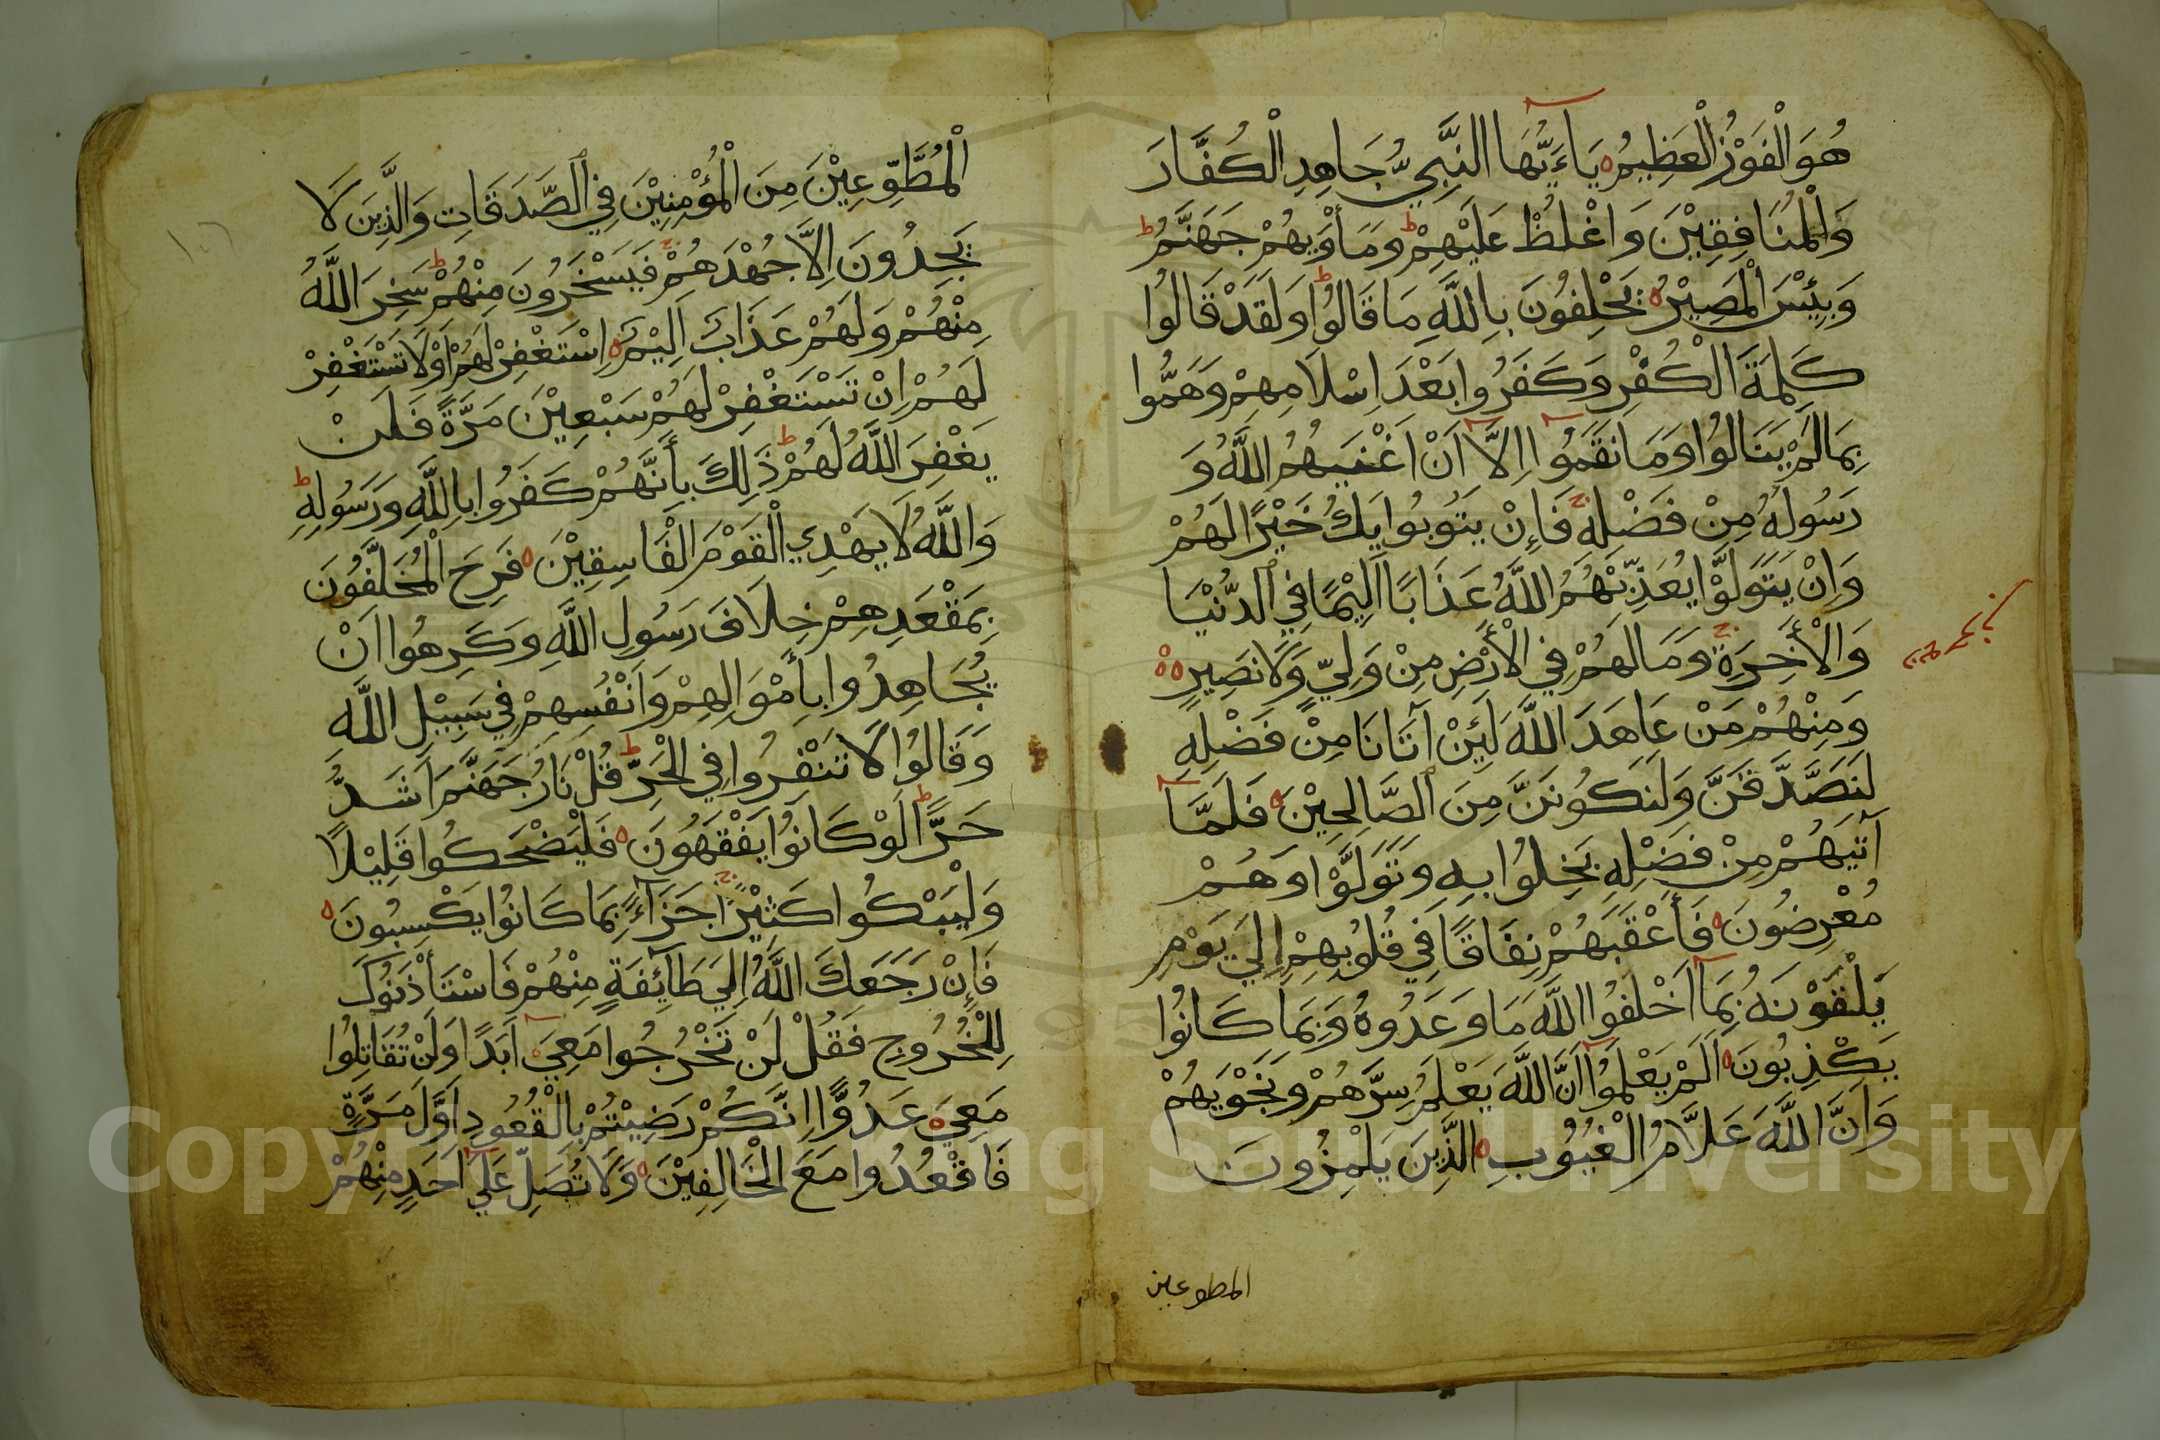 هُوَ الْفَوْزُ الْعَظِيمُ يَاءَيُّهَا النَّبِيُّ جَاهِدِ الْكُفَّارَ
وَالْمُنَافِقِيْنَ وَاغْلُظْ عَلَيْهِمْ ط وَمَأْوَيهُمْ جَهَنَّمُ ط
وَبِئْسَ الْمَصِيْرُ يَحْلِفُونَ بِاللَّهِ مَا قَالُوْا ط وَلَقَدْ قَالُوا
كَلِمَةَ الْكُفْرِ وَكَفَرُوا بَعْدَ اِسْلَامِهِمْ وَهَمُّوا
بِمَا لَمْ يَنَالُوْا وَمَا نَقَمُوا اِلَّا اَنْ اَغْنَيهُمُ اللَّهُ وَ
رَسُولُهُ مِنْ فَضْلِهِ ج فَاِنْ يَتُوبُوا يَكُ خَيْرًا لَهُمْ
وَاِنْ يَتَوَلَّوْا يُعَذِّبْهُمُ اللَّهُ عَذَابًا اَلِيْمًا فِي الدُّنْيَا
وَالْأَخِرَةِ ج وَمَا لَهُمْ فِي الْأَرْضِ مِنْ وَلِيٍّ وَلَا نَصِيرٍ
وَمِنْهُمْ مَنْ عَاهَدَ اللَّهَ لَئِنْ آتَانَا مِنْ فَضْلِهِ
لَنَصَّدَّقَنَّ وَلَنَكُونَنَّ مِنَ الصَّالِحِيْنَ فَلَمَّا
آتَيهُمْ مِنْ فَضْلِهِ بَخِلُوا بِهِ وَتَوَلَّوْا وَهُمْ
مُعْرِضُونَ فَأَعْقَبَهُمْ نِفَاقًا فِي قُلُوبِهِمْ اِلَى يَوْمِ
يَلْقَوْنَهُ بِمَا اَخْلَفُوا اللَّهَ مَا وَعَدُوهُ وَبِمَا كَانُوْا
يَكْذِبُونَ اَلَمْ يَعْلَمُوا اَنَّ اللَّهَ يَعْلَمُ سِرَّهُمْ وَنَجْوَيهُمْ
وَاَنَّ اللَّهَ عَلَّامُ الْغُيُوْبِ الَّذِينَ يَلْمِزُونَ
المطوعين
الْمُطَّوِّعِيْنَ مِنَ الْمُؤْمِنِيْنَ فِي الصَّدَقَاتِ وَالَّذِينَ لَا
يَجِدُونَ اِلَّا جُهْدَهُمْ فَيَسْخَرُونَ مِنْهُمْ ط سَخِرَ اللَّهُ
مِنْهُمْ وَلَهُمْ عَذَابٌ اَلِيْمٌ اِسْتَغْفِرْ لَهُمْ اَوْ لَا تَسْتَغْفِرْ
لَهُمْ اِنْ تَسْتَغْفِرْ لَهُمْ سَبْعِيْنَ مَرَّةً فَلَنْ
يَغْفِرَ اللَّهُ لَهُمْ ط ذَلِكَ بِأَنَّهُمْ كَفَرُوا بِاللَّهِ وَرَسُولِهِ ط
وَاللَّهُ لَا يَهْدِي الْقَوْمَ الْفَاسِقِيْنَ فَرِحَ الْمُخَلَّفُونَ
بِمَقْعَدِهِمْ خِلَافَ رَسُولِ اللَّهِ وَكَرِهُوا اَنْ
يُجَاهِدُوا بِأَمْوَالِهِمْ وَاَنْفُسِهِمْ فِي سَبِيْلِ اللَّهِ
وَقَالُوا لَا تَنْفِرُوا فِي الْحَرِّ ط قُلْ نَارُ جَهَنَّمَ اَشَدُّ
حَرًّا ط لَوْ كَانُوْا يَفْقَهُونَ فَلْيَضْحَكُوا قَلِيْلًا
وَلْيَبْكُوا كَثِيْرًا ج جَزَاءً بِمَا كَانُوْا يَكْسِبُونَ
فَاِنْ رَجَعَكَ اللَّهُ اِلَى طَائِفَةٍ مِنْهُمْ فَاسْتَأْذَنُوكَ
لِلْخُرُوجِ فَقُلْ لَنْ تَخْرُجُوا مَعِيَ اَبَدًا وَلَنْ تُقَاتِلُوا
مَعِيَ عَدُوًّا اِنَّكُمْ رَضِيْتُمْ بِالْقُعُودِ اَوَّلَ مَرَّةٍ
فَاقْعُدُوا مَعَ الْخَالِفِيْنَ وَلَا تُصَلِّ عَلَى اَحَدٍ مِنْهُمْ
Copyright © King Saud University